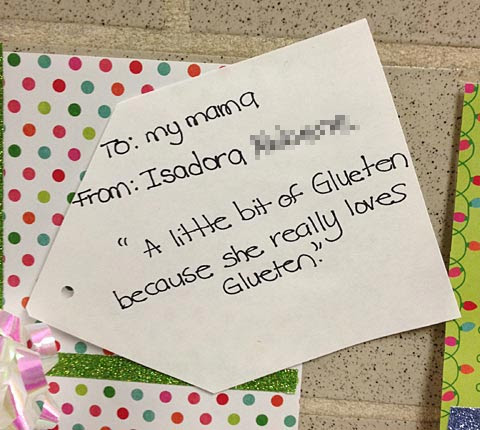 To: my mama
From: Isadora
" A little bit of Glueten
because she really loves
Glueten."